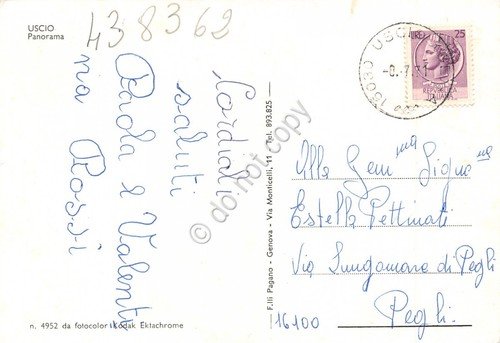 USCIO
Panorama
438362
Cordiali
saluti
Paola e Valenti
na Rossi
n. 4952 da fotocolor Kodak Ektachrome
F.lli Pagano - Genova - Via Monticelli, 11 - Tel. 893.825
do not copy
16030 USCIO
-8.7.71
LIRE 25
ITALIANA
Alla Gen.ma Sig.na
Estella Pettinati
Via Lungomare di Pegli
Pegli.
16100